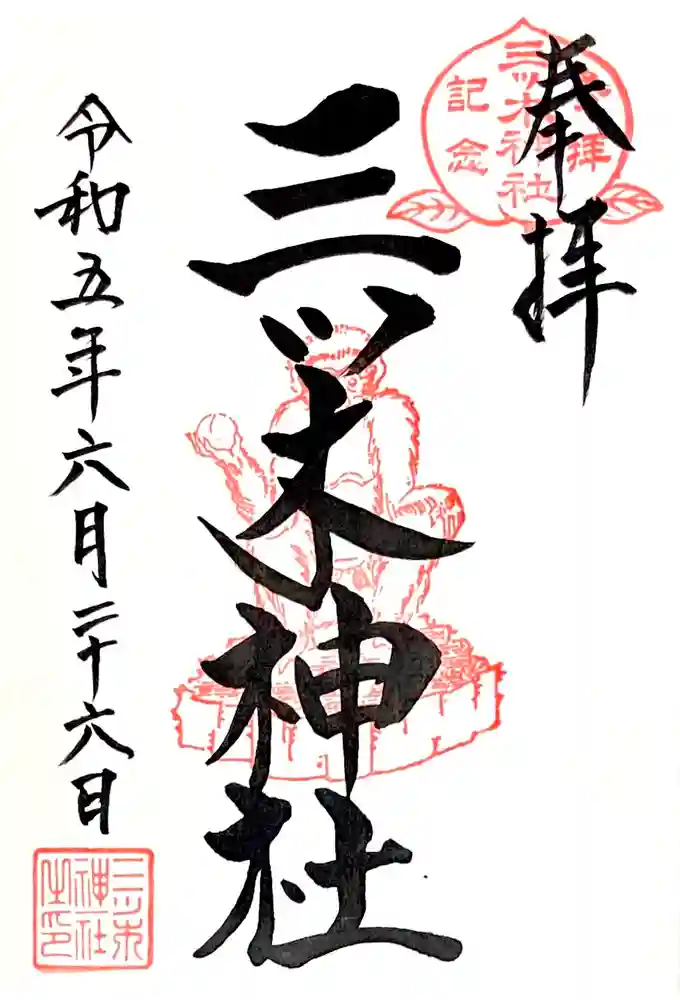 奉拝
参拝
三ツ木神社
記念
三ツ木神社
令和五年六月二十六日
三木
神社
之印